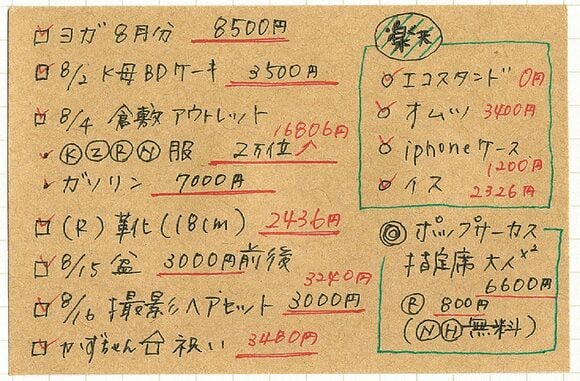 ヨガ8月分 8500円
8/2 K母BDケーキ 3500円
8/4 倉敷アウトレット
16806円
ⓀⓏⓇⓃ服 2万位
ガソリン 7000円
(R)革靴(18cm) 2436円
8/15 盆 3000円前後
3240円
8/16 撮影ヘアセット 3000円
かずちゃん 祝い 3480円
楽天
エコスタンド 0円
オムツ 3400円
iphoneケース
1200円
イス 2326円
◎ ポップサーカス
指定席 大人×2
6600円
Ⓡ 800円
(ⓃⒽ無料)